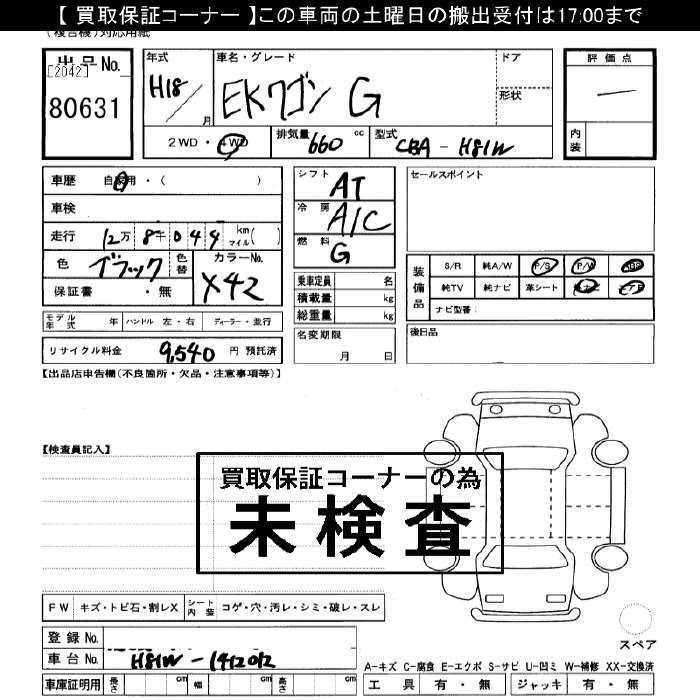 【 買取保証コーナー 】この車両の土曜日の搬出受付は17:00まで
(複合機)対応用紙
出品No.
[2042]
80631
年式
H18
月
車名・グレード
EKワゴン G
ドア
形状
評価点
―
内装
2WD・4WD
排気量 660 cc
型式 CBA - H81W
車歴 自家用・( )
車検
走行 12万 8千 0 4 4 km マイル( )
色 ブラック 色替
カラーNo. X42
保証書 ・無
シフト AT
冷房 A/C
燃料 G
乗車定員 名
積載量 kg
総重量 kg
セールスポイント
装備品
S/R 純A/W P/S P/W ABS
純TV 純ナビ 革シート
ナビ型番:
モデル年式 年 ハンドル 左・右 ディーラー・並行
名変期限
月 日
後日品
リサイクル料金 9,540 円 預託済
【出品店申告欄(不良箇所・欠品・注意事項等)】
【検査員記入】
買取保証コーナーの為
未検査
FW キズ・トビ石・割レX シート内装 コゲ・穴・汚レ・シミ・破レ・スレ
登録No.
車台No. H81W-1412012
車庫証明用 長さ cm 幅 cm 高さ cm
スペア
A-キズ C-腐食 E-エクボ S-サビ U-凹ミ W-補修 XX-交換済
工具 有・無 ジャッキ 有・無